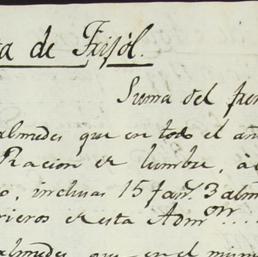 de Frijól.
Suma del fren
almudes que en todo el añ
Racion de lumbre, á
o, inclusas 15 fan.s 3 alm
rieros de esta Adm.on
almudes que en el mism